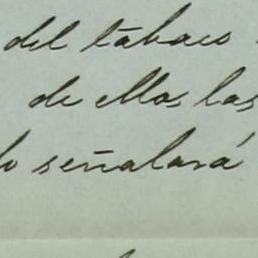 del tabaco
de ellos las
señalará